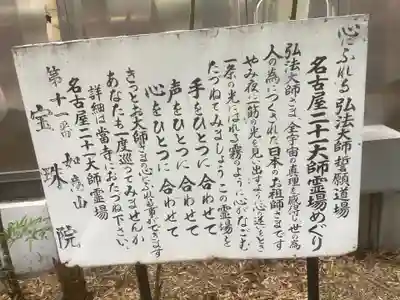 心にふれる 弘法大師 誓願道場
名古屋二十一大師霊場めぐり
弘法大師さまは全宇宙の真理を感得し世の為
人の為につくされた日本のお祖師さまです
やみ夜に一筋の光を見い出すように心迷えるとき
一条の光にはれる霧のように心がなごむ
たづねてみましょうこの霊場を
手をひとつに 合わせて
声をひとつに 合わせて
心をひとつに 合わせて
きっとお大師さまの心にふれる事ができます
あなたも一度巡ってみませんか
詳細は当寺におたづね下さい。
名古屋二十一大師霊場
第十一番 如意山
宝珠院